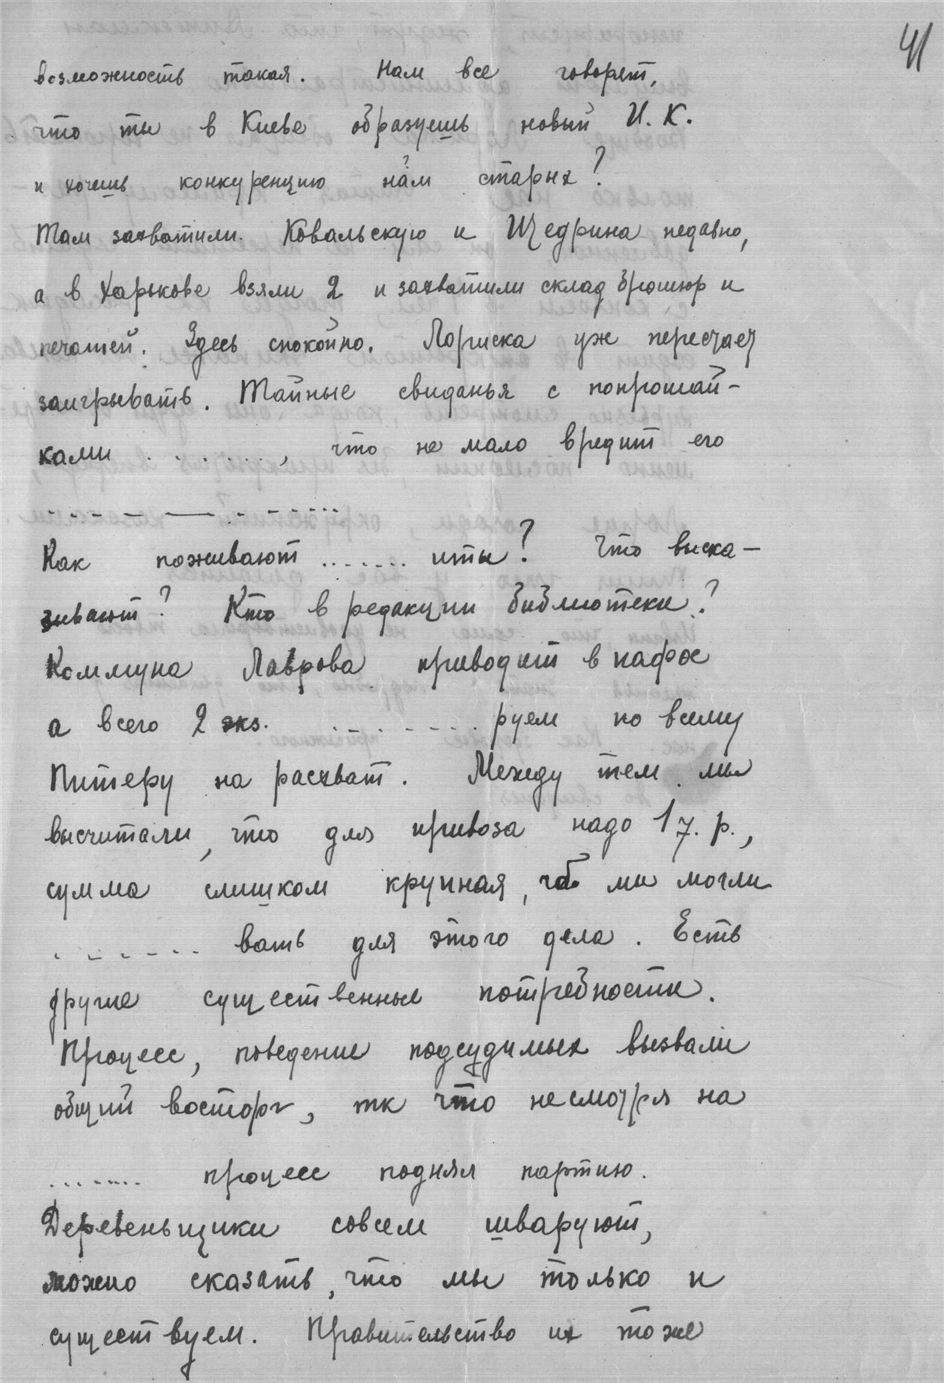 41
возможность такая. Нам все говорят,
что ты в Киеве образуешь новый И. К.
и хочешь конкуренцию нам старых?
Там захватили. Ковальскую и Щедрина недавно,
а в Харькове взяли 2 и захватили склад брошюр и
печатей. Здесь спокойно. Лориска уж перестает
заигрывать. Тайные свиданья с попрошай-
ками ..........., что не мало вредит его
.....................
Как поживают ....... иты? Что выска-
зывают? Кто в редакции библиотеки?
Коммуна Лаврова приводит в пафос
а всего 2 экз. ........... руем по всему
Питеру на расхват. Между тем мы
высчитали, что для привоза надо 1 т. р.,
сумма слишком крупная, чтоб ми могли
....... вать для этого дела. Есть
другие существенные потребности.
Процесс, поведение подсудимых вызвали
общий восторг, тк что несмотря на
....... процесс поднял партию.
Деревеньщики совсем шваруют,
можно сказать, что мы только и
существуем. Правительство их тоже